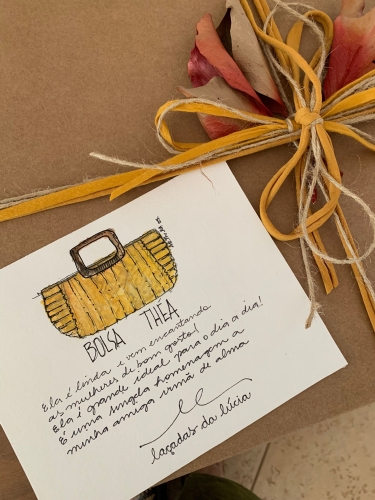 BOLSA THÉA
Ela é linda e vem encantando
as mulheres de bom gosto!
Ela é grande ideal para o dia a dia!
É uma singela homenagem a
minha amiga irmã de alma
laçadas da lúcia